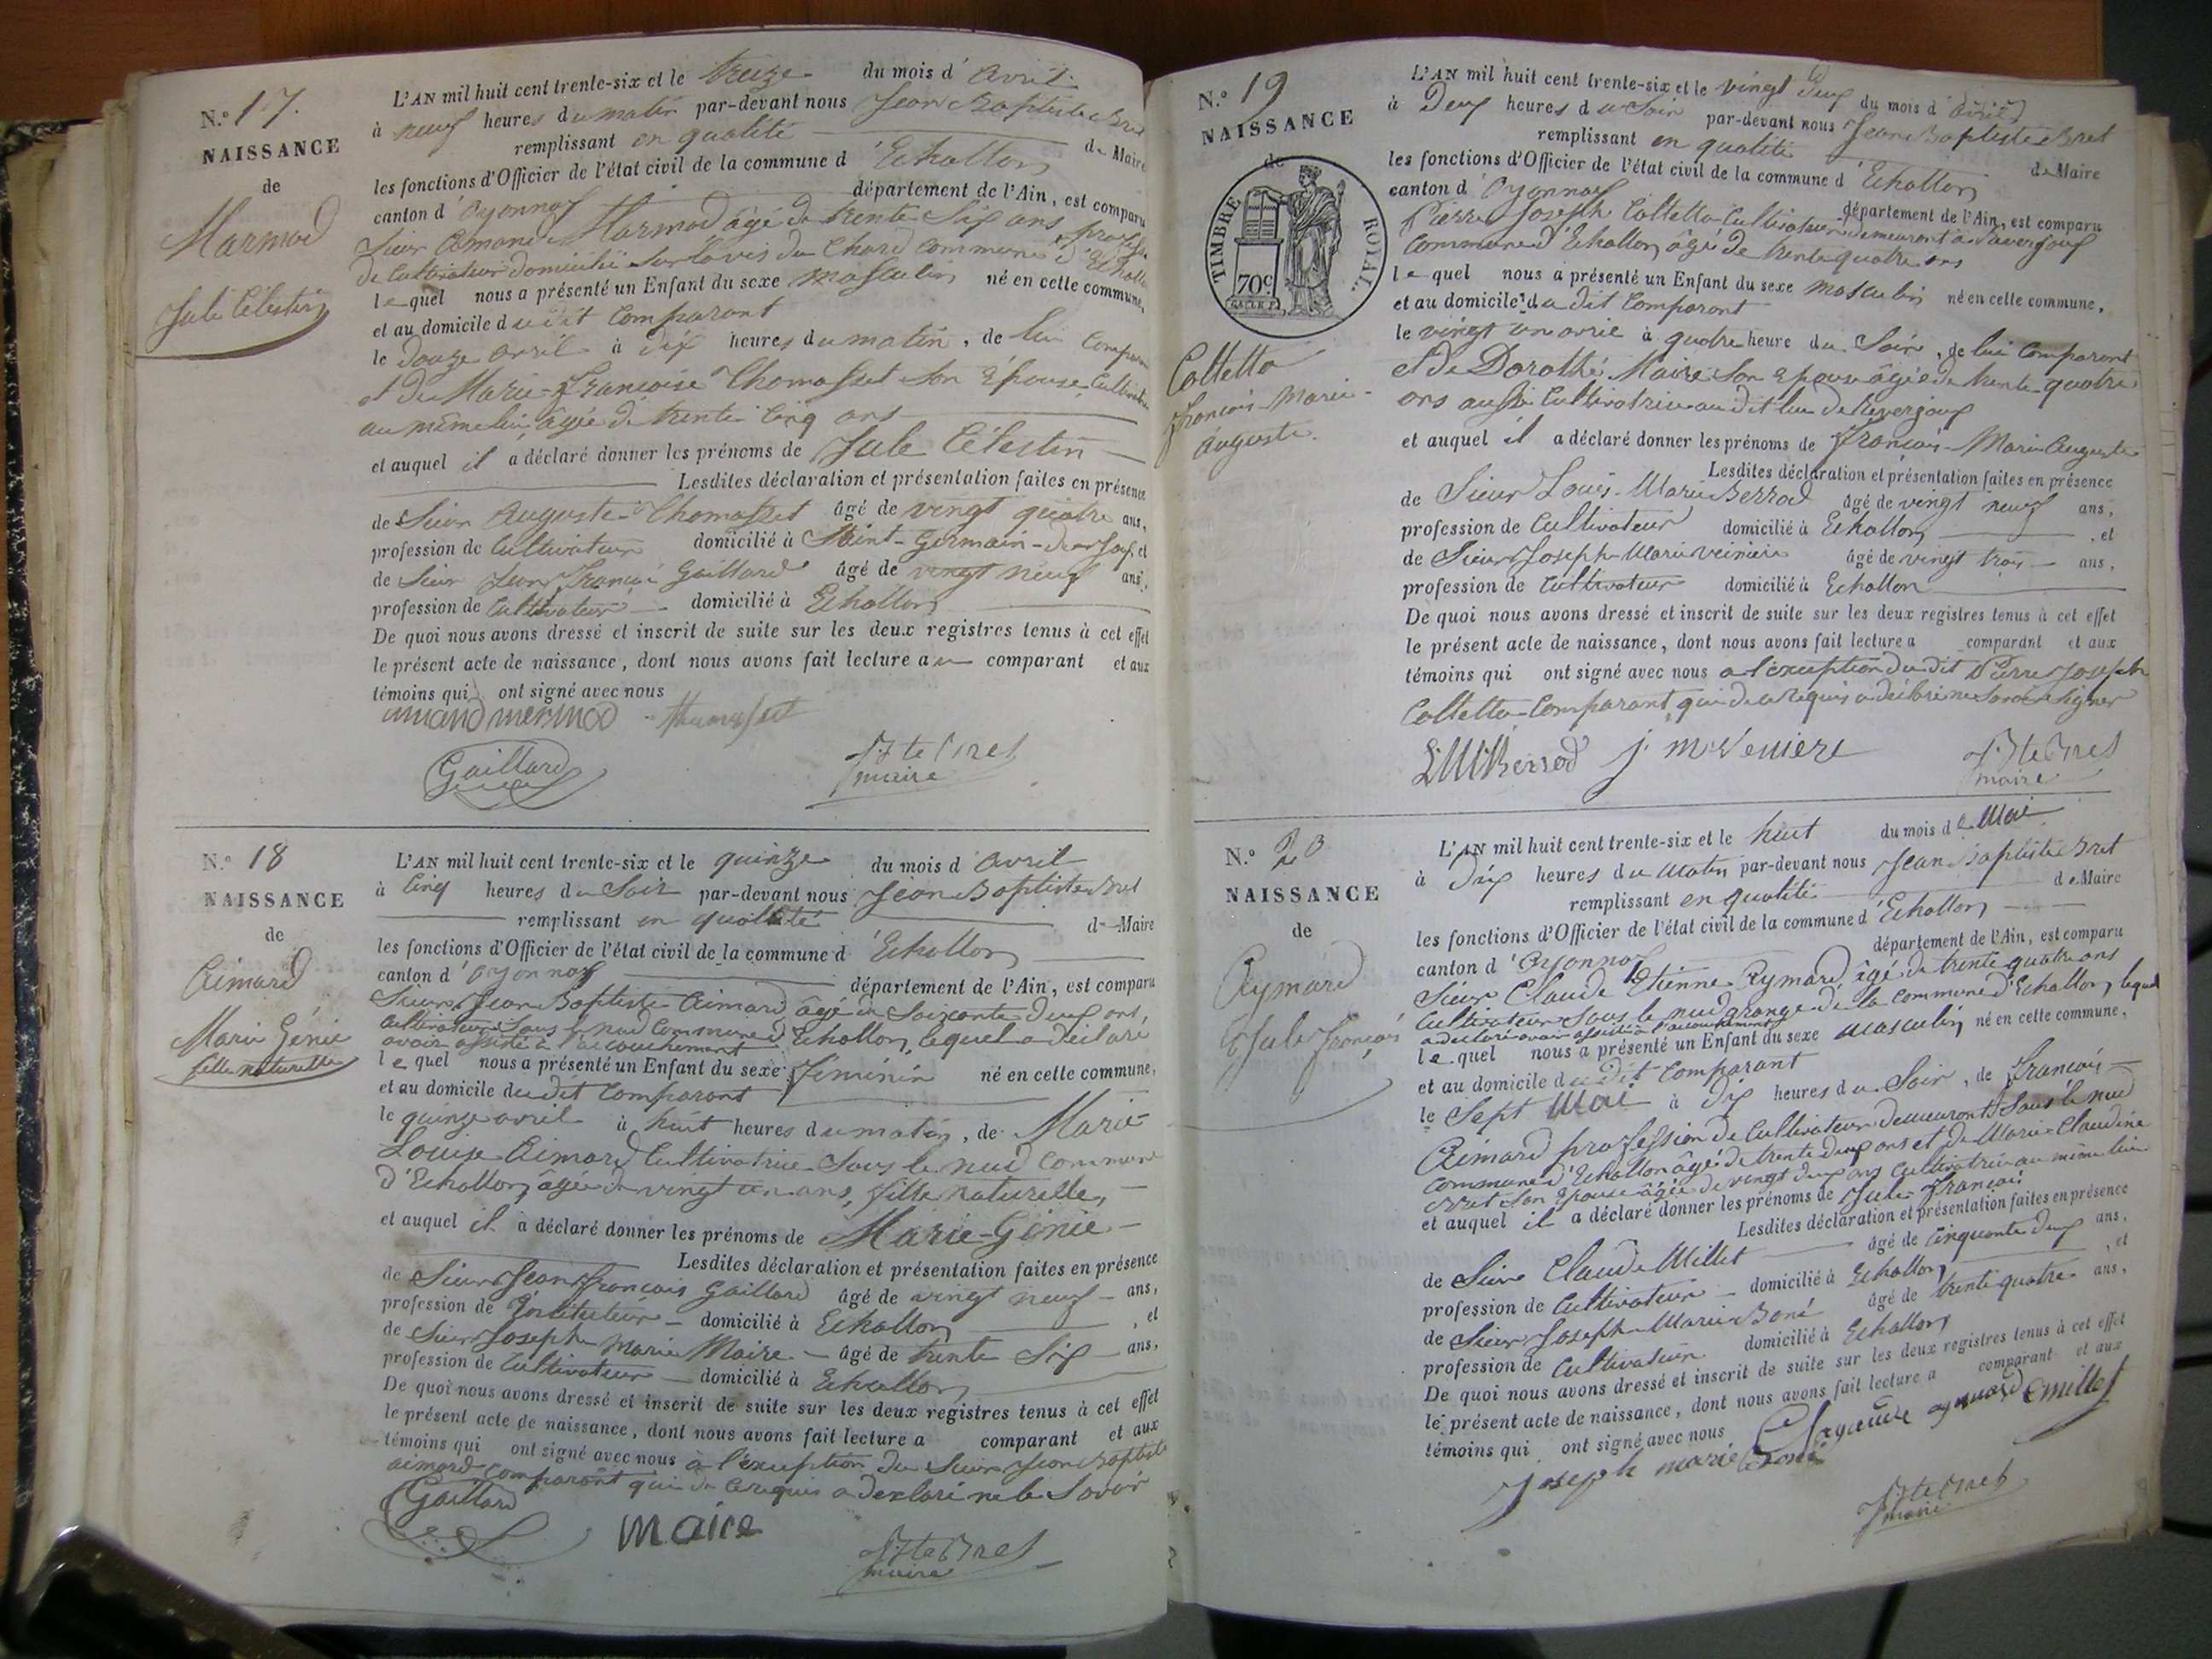 N.º 17.
NAISSANCE
de
Marmod
Jule Célestin
L'AN mil huit cent trente-six et le treize du mois d'avril
à neuf heures du matin par-devant nous Jean Baptiste Bret
remplissant en qualité de Maire
les fonctions d'Officier de l'état civil de la commune d'Echallon
canton d'Oyonnax département de l'Ain, est comparu
Sieur Amand Marmod âgé de trente six ans profession
de Cultivateur domicilié sur commune d'Echallon
lequel nous a présenté un Enfant du sexe masculin né en cette commune,
et au domicile dudit Comparant
le douze avril à dix heures du matin, de lui Comparant
et de Marie-Françoise Thomasset son épouse, Cultivatrice
au même lieu, âgée de trente cinq ans
et auquel il a déclaré donner les prénoms de Jule Célestin
Lesdites déclaration et présentation faites en présence
de Sieur Auguste Thomasset âgé de vingt quatre ans,
profession de Cultivateur domicilié à Saint-Germain-de-Joux, et
de Sieur Jean François Gaillard âgé de vingt neuf ans,
profession de Cultivateur domicilié à Echallon
De quoi nous avons dressé et inscrit de suite sur les deux registres tenus à cet effet
le présent acte de naissance, dont nous avons fait lecture au comparant et aux
témoins qui ont signé avec nous
amand mermod thomasset
Gaillard J Bte Bret
maire
N.º 18
NAISSANCE
de
Aimard
Marie Génie
fille naturelle
L'AN mil huit cent trente-six et le quinze du mois d'avril
à cinq heures du Soir par-devant nous Jean Baptiste Bret
remplissant en qualité de Maire
les fonctions d'Officier de l'état civil de la commune d'Echallon
canton d'Oyonnax département de l'Ain, est comparu
Sieur Jean Baptiste Aimard, âgé de Soixante deux ans,
cultivateur Sous le nud Commune d'Echallon, lequel a déclaré
avoir assisté à l'accouchement
lequel nous a présenté un Enfant du sexe féminin né en cette commune,
et au domicile dudit Comparant
le quinze avril à huit heures du matin, de Marie
Louise Aimard Cultivatrice Sous le nud Commune
d'Echallon, âgée de vingt un ans, fille naturelle,
et auquel il a déclaré donner les prénoms de Marie-Génie
Lesdites déclaration et présentation faites en présence
de Sieur Jean François Gaillard âgé de vingt neuf ans,
profession de Instituteur domicilié à Echallon, et
de Sieur Joseph Marie Maire âgé de trente Six ans,
profession de Cultivateur domicilié à Echallon
De quoi nous avons dressé et inscrit de suite sur les deux registres tenus à cet effet
le présent acte de naissance, dont nous avons fait lecture a comparant et aux
témoins qui ont signé avec nous à l'exception du Sieur Jean Baptiste
aimard comparant qui de ce requis a déclaré ne le Savoir
Gaillard maire J Bte Bret
maire
N.º 19
NAISSANCE
de
TIMBRE ROYAL.
70c
Colletta
François-Marie-
Auguste.
L'AN mil huit cent trente-six et le vingt deux du mois d'avril
à Deux heures du Soir par-devant nous Jean Baptiste Bret
remplissant en qualité de Maire
les fonctions d'Officier de l'état civil de la commune d'Echallon
canton d'Oyonnax département de l'Ain, est comparu
Pierre Joseph Colletta Cultivateur demeurant à
Commune d'Echallon, âgé de trente quatre ans
lequel nous a présenté un Enfant du sexe masculin né en cette commune,
et au domicile du dit Comparant
le vingt un avril à quatre heure du Soir, de lui Comparant
et de Dorothé Maire Son épouse âgée de trente quatre
ans aussi Cultivatrice au dit lieu de
et auquel il a déclaré donner les prénoms de François-Marie Auguste
Lesdites déclaration et présentation faites en présence
de Sieur Louis-Marie Berrod âgé de vingt neuf ans,
profession de Cultivateur domicilié à Echallon, et
de Sieur Joseph Marie Veinière âgé de vingt trois ans,
profession de Cultivateur domicilié à Echallon
De quoi nous avons dressé et inscrit de suite sur les deux registres tenus à cet effet
le présent acte de naissance, dont nous avons fait lecture a comparant et aux
témoins qui ont signé avec nous a l'exception du dit Pierre Joseph
Colletta Comparant, qui de ce requis a déclaré ne savoir signer
L M Berrod j m Veniere J Bte Bret
maire
N.º 20
NAISSANCE
de
Aymard
Jule François
L'AN mil huit cent trente-six et le huit du mois de Mai
à Dix heures du Matin par-devant nous Jean Baptiste Bret
remplissant en qualité de Maire
les fonctions d'Officier de l'état civil de la commune d'Echallon
canton d'Oyonnax département de l'Ain, est comparu
Sieur Claude Etienne Aymard, âgé de trente quatre ans
Cultivateur Sous le nud grange de la Commune d'Echallon, lequel
a déclaré avoir assisté à l'accouchement
lequel nous a présenté un Enfant du sexe masculin né en cette commune,
et au domicile dudit Comparant
le Sept Mai à dix heures du Soir, de François
Aimard profession de Cultivateur demeurant Sous le nud
Commune d'Echallon âgé de trente deux ans et de Marie Claudine
Bret son épouse âgée de vingt deux ans Cultivatrice au même lieu
et auquel il a déclaré donner les prénoms de Jule François
Lesdites déclaration et présentation faites en présence
de Sieur Claude Millet âgé de cinquante deux ans,
profession de Cultivateur domicilié à Echallon, et
de Sieur Joseph Marie Boné âgé de trente quatre ans,
profession de Cultivateur domicilié à Echallon
De quoi nous avons dressé et inscrit de suite sur les deux registres tenus à cet effet
le présent acte de naissance, dont nous avons fait lecture a comparant et aux
témoins qui ont signé avec nous aymard Cmillet
Joseph marie Boné
J Bte Bret
maire